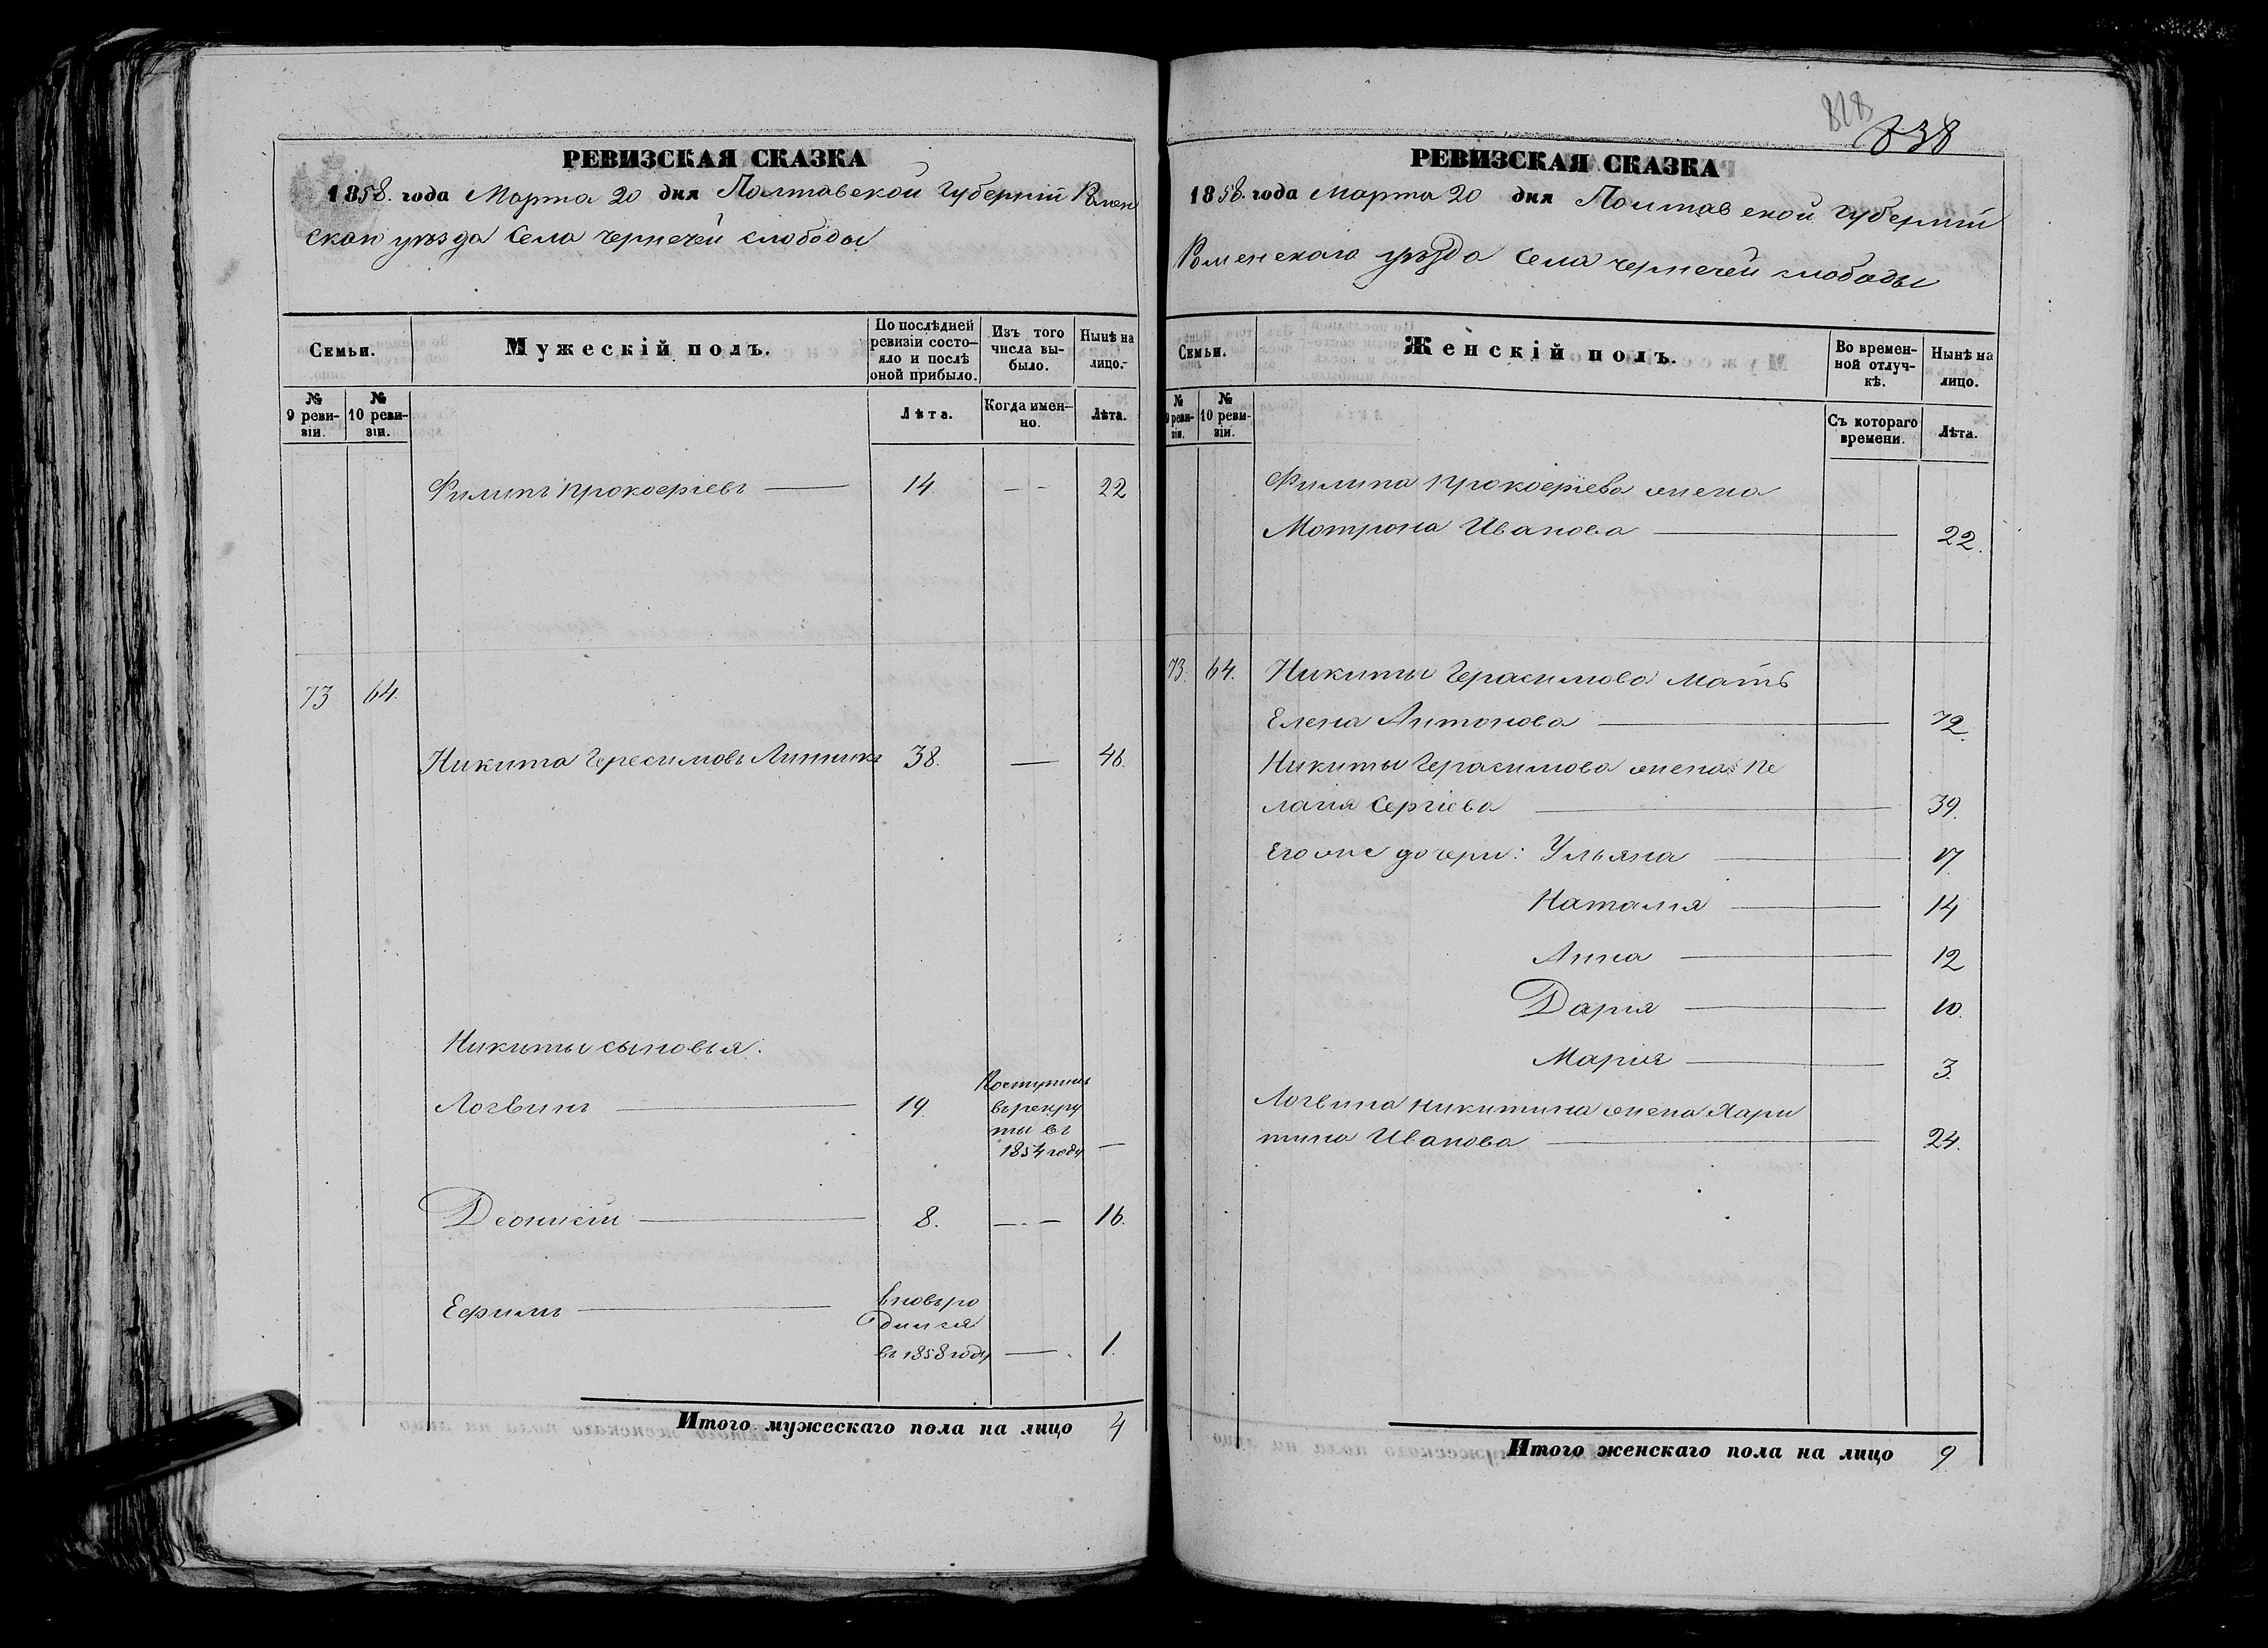 РЕВИЗСКАЯ СКАЗКА
1858. года Марта 20 дня Полтавской Губерніи Ромен
скаго уѣзда Села чернечей слободы
Семьи.
Мужескій полъ.
По послѣдней ревизіи состо-
яло и послѣ
оной прибыло.
Изъ того
числа вы-
было.
Нынѣ на
лицо.
№
9 реви-
зіи.
№
10 реви-
зіи.
Лѣта.
Когда имен-
но.
Лѣта.
Филипъ Прокофіевъ 14 22
73 64.
Никита Герасимовъ Линникъ 38. 46.
Никиты сыновья.
Логвинъ 19. Поступилъ
въ рекру
ты въ
1854 году
Деонисій 8. 16.
Ефимъ вновь ро
дился
въ 1858 году 1.
Итого мужескаго пола на лицо 4
828
838
РЕВИЗСКАЯ СКАЗКА
1858. года Марта 20 дня Полтавской Губерніи
Роменскаго уѣзда Села чернечей слободы
Семьи.
Женскій полъ.
Во времен-
ной отлуч-
кѣ.
Нынѣ на
лицо.
№
9 реви-
зіи.
№
10 реви-
зіи.
Съ котораго
времени.
Лѣта.
Филипа Прокофіева жена
Мотрона Иванова 22.
73. 64. Никиты Герасимова мать
Елена Антонова 72.
Никиты Герасимова жена Пе
лагія Сергіева 39.
Его же дочери: Ульяна 17.
Наталія 14
Анна 12
Дарія 10.
Марія 3.
Логвина Никитина жена Хари
тина Иванова 24.
Итого женскаго пола на лицо 9